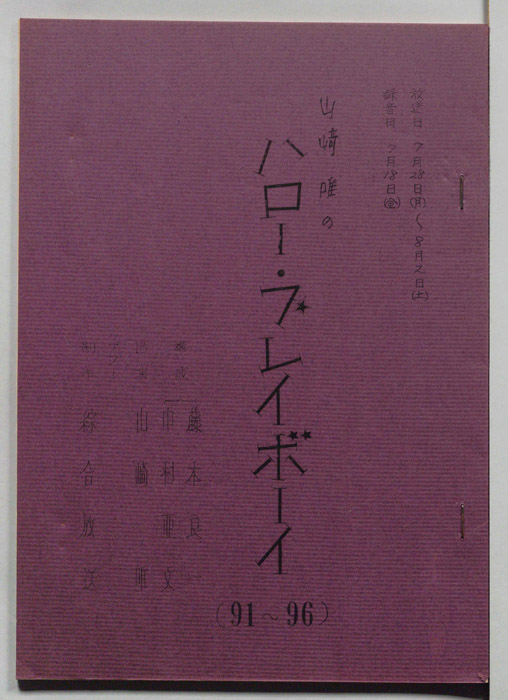 放送日 7月28日(月)~8月2日(土)
録音日 7月18日(金)
山崎唯の
ハロー・プレイボーイ
(91~96)
構成
藤木良一
市村亜文
出演
山崎唯
制作
綜合放送